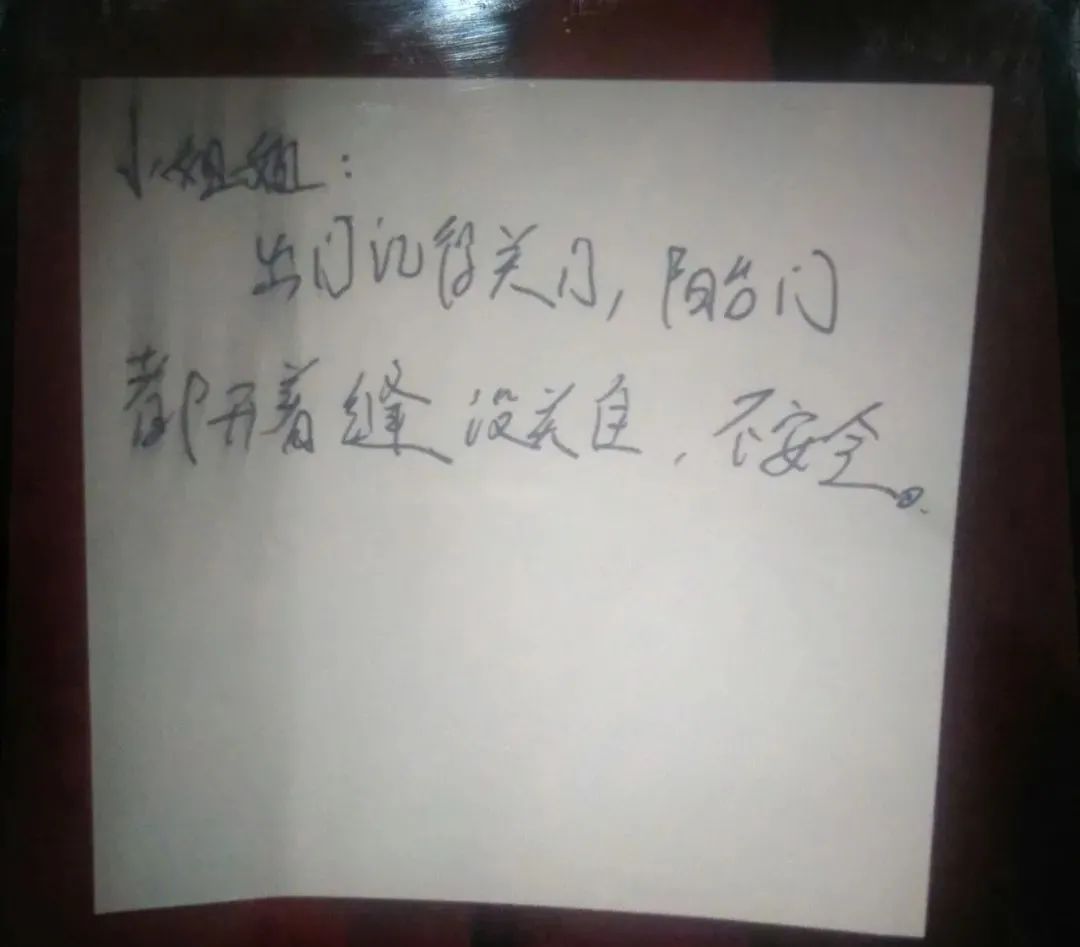 小姐姐:
出门记得关门,阳台门
都开着缝没关自,不安全。